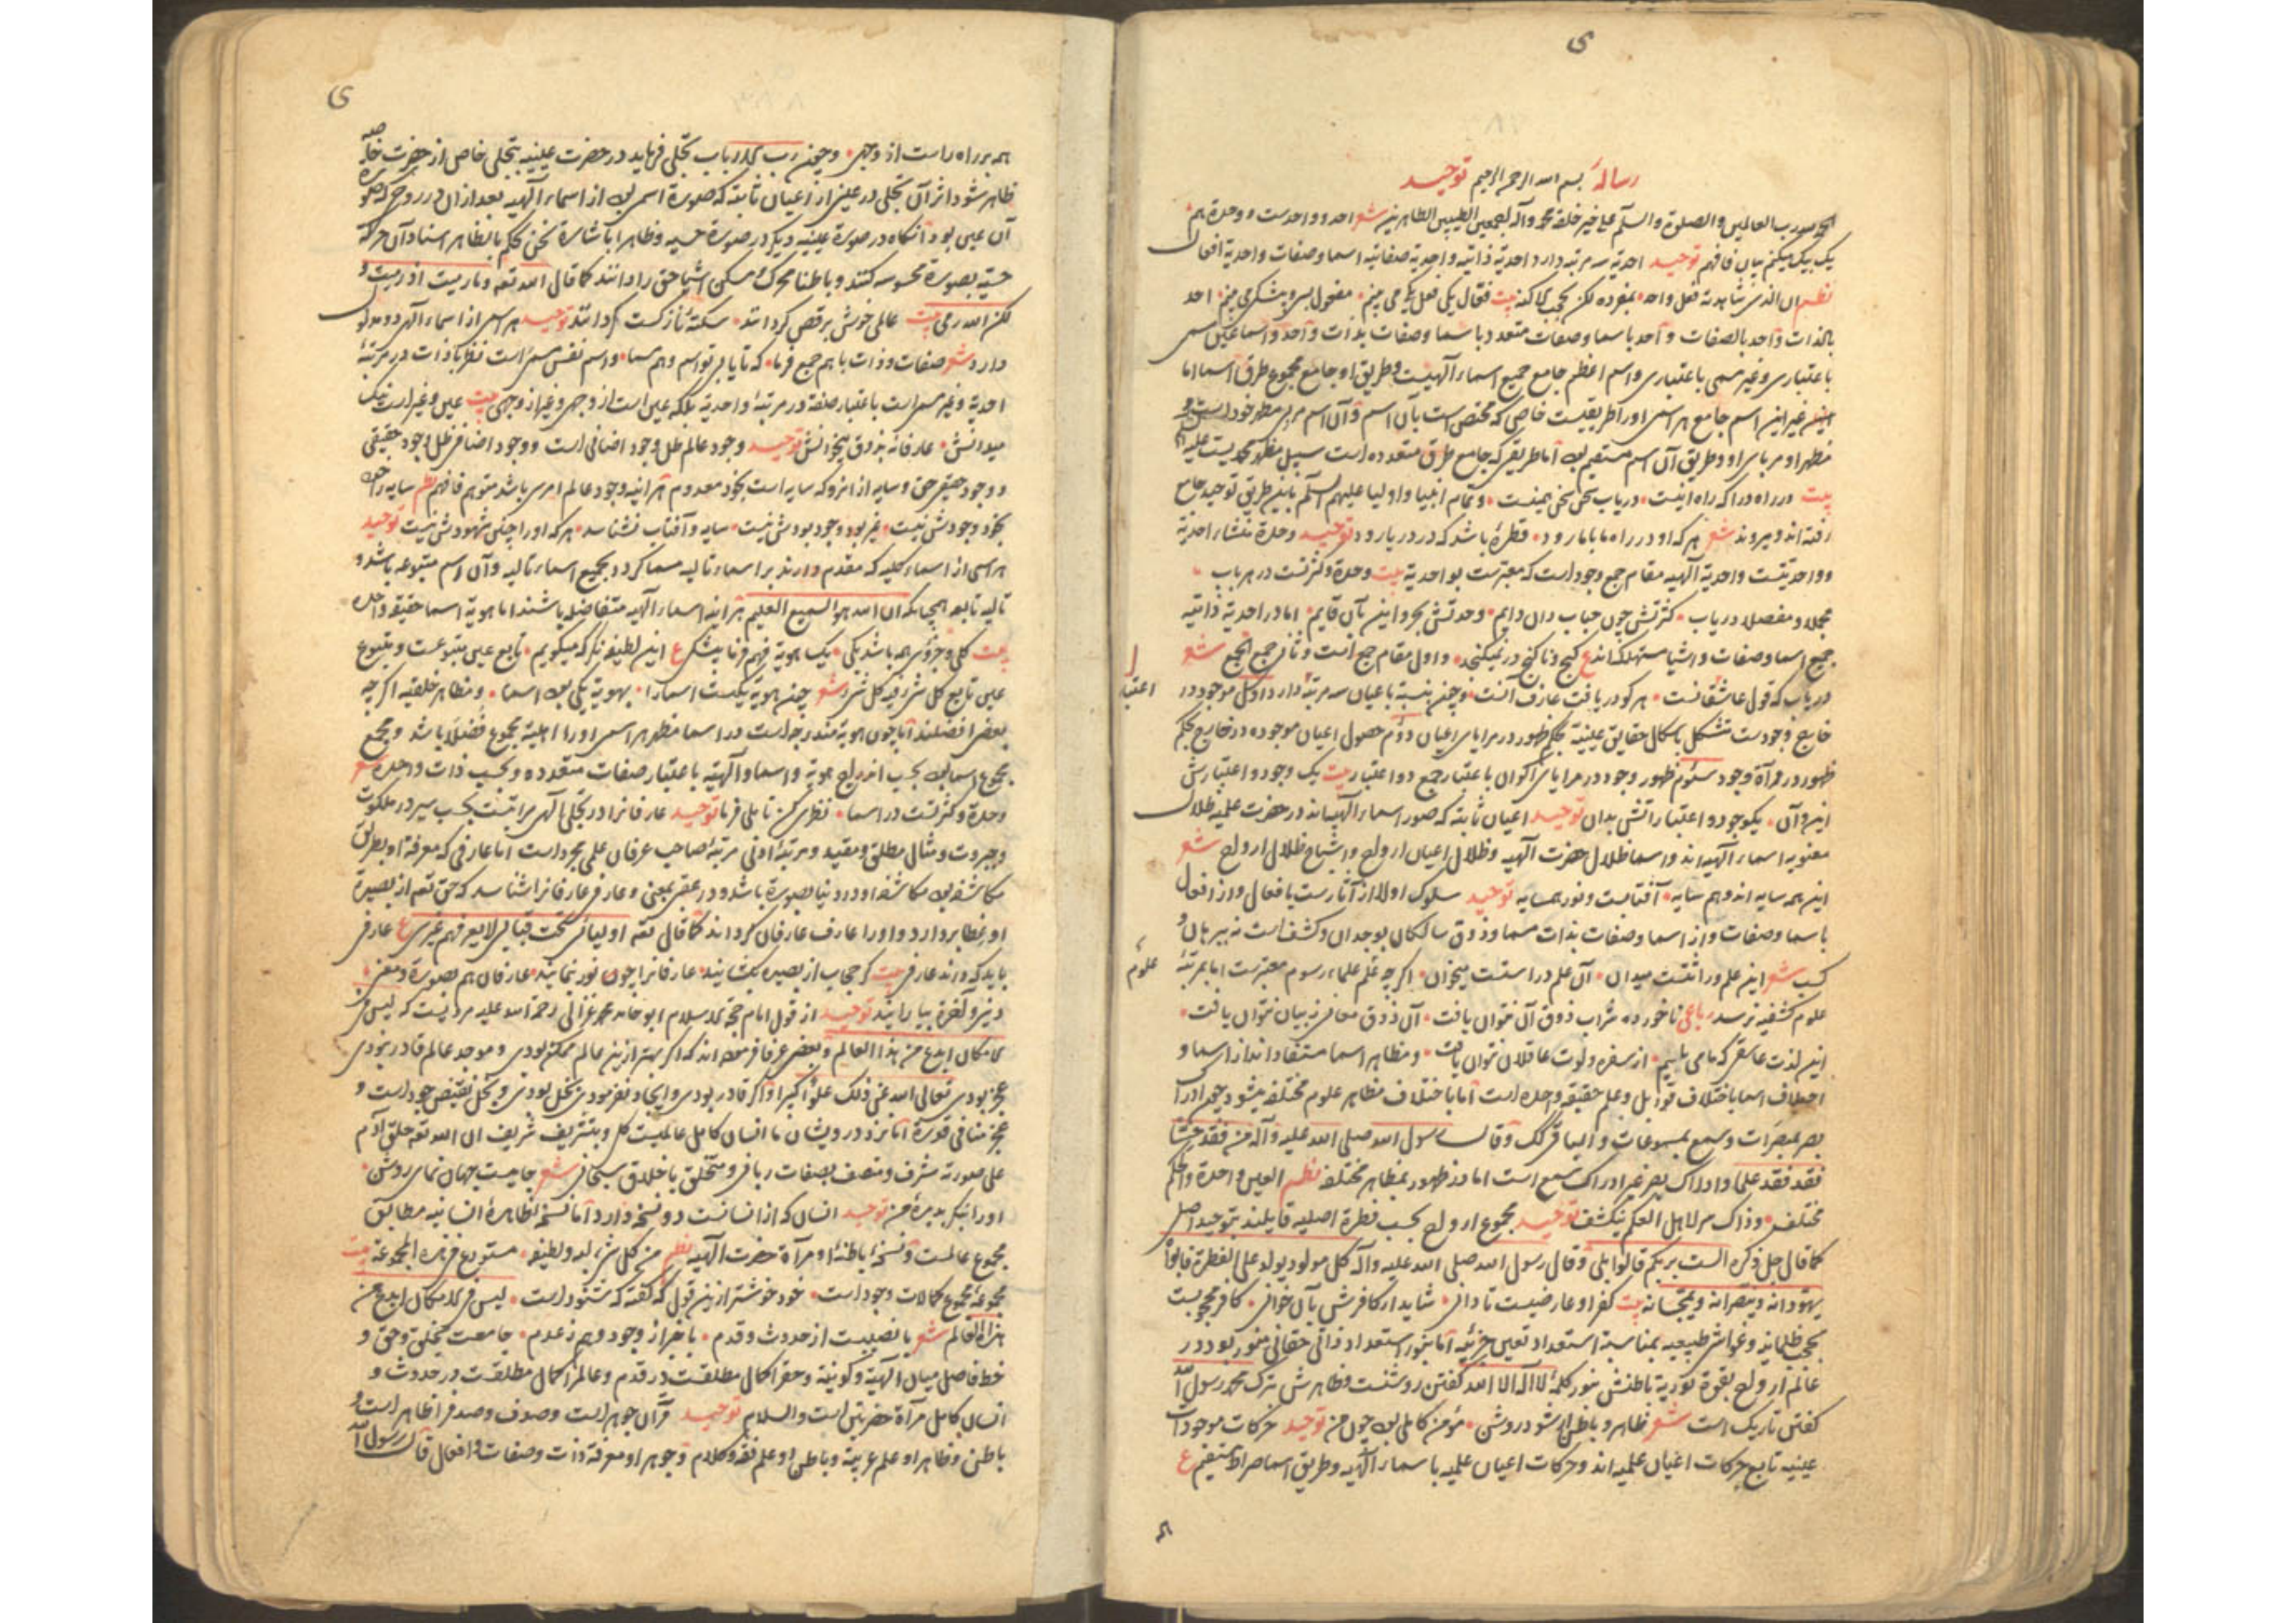 ی
رسالهٔ بسم الله الرحمن الرحیم توحید
الحمد لله رب العالمین والصلوة والسلم علی خیر خلقه محمد وآله اجمعین الطیبین الطاهرین شعر احد و واحدست و وحدة هم
یک بیک میکنم بیان فافهم توحید احدیة سه مرتبه دارد احدیة ذاتیه و احدیة صفاتیه اسما و صفات و احدیة افعال
نظم ان الذی شاهدته فعل واحد بمفرده لکن بحجب اکنه بیت فعال یکی فعل یکی می بینم مفعول بسی و بیشکی می بینم احد
بالذات واحد بالصفات و احد باسما و صفات متعدد باسما و صفات بذات واحد و اسما عین مسمی
باعتباری و غیر مسمی باعتباری و اسم اعظم جامع جمیع اسماء آلهیست و طریق او جامع مجموع طرق اسما اما
غیر این اسم جامع هر اسمی اورا طریقیست خاص که مختص است بآن اسم و آن اسم مربی مظهر خود است و
مظهر او مربای او و طریق آن اسم مستقیم بود اما طریقی که جامع طرق متعدده است سبیل مظهر محمدیست علیه السلم
بیت در راه درا که راه اینست دریاب سخن سخن همینست و تمام انبیا و اولیا علیهم السلم باین طریق توحید جامع
رفته اند و میروند شعر هر که او در راه ما با ما رود قطرهٔ باشد که در دریا رود توحید وحدة منشاء احدیة
و واحدیتست واحدیة آلهیه مقام جمع وجود است که معتبرست بواحدیة بیت وحدة و کثرتست در هر باب
مجملا و مفصلا دریاب کثرتش چون حباب دان دایم وحدتش بحر و این بآن قایم اما در احدیة ذاتیه
جمیع اسما و صفات و اشیا مستهلک اند ع گنج و ناگنج در نمیگنجد و اول مقام جمع است و ثانی جمع الجمع شعر
دریاب که قول عاشقانست هر کو دریافت عارف آنست و چون بنسبة با عیان سه مرتبه دارد اول موجود در
اعتبار
خارج وجودست متشکل باشکال حقایق عینیة بحکم ظهور در مرایای اعیان دوم حصول اعیان موجوده در خارج بحکم
ظهور در مرآة وجود سیوم ظهور وجود در مرایای اکوان باعتبار جمع دو اعتبار بیت یک وجود و اعتبارش
این و آن یک وجود و اعتباراتش بدان توحید اعیان ثابته که صور اسماء آلهیه اند در حضرت علمیه ظلال
معنویه اسماء آلهیه اند و اسما ظلال حضرت آلهیه و ظلال اعیان ارواح و اشباح ظلال ارواح شعر
این همه سایه اند و هم سایه آفتابست و نور همسایه توحید سلوک اولا از آثارست بافعال و از افعال
باسما و صفات و از اسما و صفات بذات مسما و ذوق سالکان بوجدان و کشف است نه ببرهان و
کسب شعر این علم وراثتست میدان آن علم دراستست میخوان اگر چه علم علماء رسوم معتبرست اما بمرتبهٔ
علوم
علوم کشفیه نرسد رباعی ناخورده شراب ذوق آن نتوان یافت آن ذوق معانی ز بیان نتوان یافت
این لذت عاشقی که ما می یابیم از سفره و لوت عاقلان نتوان یافت و مظاهر اسما مستفاد اند از اسما و
اختلاف اسما باختلاف قوابل و علم حقیقة واحده است اما باختلاف مظاهر علوم مختلفه میشود چون ادراک
بصر بمبصرات و سمع بمسموعات و الباقی کذلک وقال رسول الله صلی الله علیه وآله من فقد حسا
فقد فقد علما و ادراک بصر غیر ادراک سمع است اما در ظهور بمظاهر مختلفه نظم العین واحدة والحکم
مختلف وذاک سر لاهل العلم ینکشف توحید مجموع ارواح بحسب فطرة اصلیه قایلند بتوحید اصلی
کما قال جل ذکره الست بربکم قالوا بلی وقال رسول الله صلی الله علیه وآله کل مولود یولد علی الفطرة فابواه
یهودانه وینصرانه ویمجسانه بیت کفر او عارضیست تا دانی شاید ار کافرش بآن خوانی کافر محجوبست
بحجب ظلمانیه و غواشی طبیعیه بمناسبة استعداد تعین جزئیه اما بنور استعداد ذاتی حقانی منور بود در
عالم ارواح بقوة نوریة باطنش بنور کلمهٔ لا اله الا الله گفتن روشنست و ظاهرش بترک محمد رسول الله
گفتن تاریک است شعر ظاهر و باطن ار شود روشن مؤمن کاملی بود چون من توحید حرکات موجودات
عینیه تابع حرکات اعیان علمیه اند و حرکات اعیان علمیه باسماء آلهیه و طریق اسما صراط مستقیم ع
ی
همه بر راه راست از وجهی و چون رب الارباب تجلی فرماید در حضرت عینیه بتجلی خاص از حضرت خاصه
ظاهر شود اثر آن تجلی در عینی از اعیان ثابته که صورة اسمی بود از اسماء آلهیه بعد از ان در روح که صورة
آن عین بود آنگاه در صورة عینیه دیگر در صورة حسیه و ظاهرا باشارة نحن نحکم بالظاهر اسناد آن حرکة
حسیه بصورة محسوسه کنند و باطنا محرک و مسکن اشیا حق را دانند کما قال الله تعه وما رمیت اذ رمیت و
لکن الله رمی بیت عالمی خوش برقص گرداند سکنه باز گشت گرداند توحید هر اسمی از اسماء آلهیه دو مدلول
دارد شعر صفات و ذات با هم جمع فرما که تا یابی تو اسم و هم مسما و اسم نفس مسمی است نظر با ذات در مرتبهٔ
احدیة و غیر مسمی است باعتبار صفة در مرتبهٔ واحدیة بلکه عین است از وجهی و غیر از وجهی بیت عین و غیر است نیک
میدانش عارفانه بذوق میخوانش توحید وجود عالم ظل وجود اضافی است و وجود اضافی ظل وجود حقیقی
و وجود حقیقی حق و سایه از انرو که سایه است بخود معدوم هر آینه وجود عالم امری باشد متوهم فافهم نظم سایه را چون
بخود وجودش نیست غیر بود وجود بودش نیست سایه و آفتاب نشناسد هر که او را چنین شهودش نیست توحید
هر اسمی از اسماء کلیه که مقدم دارند بر اسماء تالیه مسما گردد بجمیع اسماء تالیه و آن اسم متبوعه باشد و
تالیه تابعه همچنانکه ان الله هو السمیع العلیم هر آینه اسماء آلهیه متفاضله باشند اما هویة اسما حقیقة واحده
بیت کلی و جزوی همه باشد یکی یک هویة فهم فرما بیشکی ع این لطیفه نگر که میگویم تابع عین متبوعست و متبوع
عین تابع کل شیء فیه کل شیء شعر چون هویة یکیست اسما را بهویة یکی بود اسما و مظاهر خلقیه اگر چه
بعضی افضلند اما چون هویة مندرجه است در اسما مظهر هر اسمی اورا اهلیة مجموع فضلا باشد و مجمع
مجموع اسما بود بحسب اندراج هویة و اسما و آلهیه باعتبار صفات متعدده و بحسب ذات واحده شعر
وحدة و کثرتست در اسما نظری کن تاملی فرما توحید عارفانرا در تجلی آلهی مراتبست بحسب سیر در ملکوت
و جبروت و مثال مطلق و مقید و مرتبهٔ ادنی مرتبهٔ صاحب عرفان علمی مجرد است اما عارفی که معرفة او بطریق
مکاشفه بود مکاشفه او در دنیا بصورة باشد و در عقبی بمعنی و عارفی عارفانرا شناسد که حق تعه از بصیرة
او غطا بردارد و او را عارف عارفان گرداند کما قال تعه اولیائی تحت قبابی لا یعرفهم غیری ع عارفی
باید که داند عارفی بیت گر حجاب از بصیره بگشایند عارفانرا چون نور بنمایند عارفان هم بصورة و معنی
دنیی و آخرة بیارایند توحید از قول امام حجة الاسلام ابو حامد محمد غزالی رحمة الله علیه مرویست که لیس فی
الامکان ابدع من هذا العالم و بعضی عرفا فرموده اند که اگر بهتر ازین عالم ممکن بودی و موجد عالم قادر نبودی
عجز بودی تعالی الله عن ذلک علوا کبیرا و اگر قادر بودی و ایجاد نفرمودی بخل بودی و بخل نقیض جود است و
عجز منافی قدرة اما نزد درویشان ما انسان کامل عالمیست کل و بتشریف شریف ان الله تعه خلق آدم
علی صورته مشرف و متصف بصفات ربانی و متخلق باخلاق سبحانی شعر جامیست جهان نمای روشن
اورا بنگر بدیدهٔ من توحید انسان که از انسانست دو نسخه دارد اما نسخهٔ ظاهرهٔ انسانیه مطابق
مجموع عالمست و نسخهٔ باطنهٔ او مرآة حضرت آلهیه نظم من کل شیء لبه ولطیفه مستودع فی هذه المجموعة بیت
مجموعهٔ مجموع کمالات وجود است خود خوشتر ازین قول که گفته که شنود است لیس فی الامکان ابدع من
هذا العالم شعر با نصیبست از حدوث و قدم با خبر از وجود وهم ز عدم جامعست بخلق و حق و
خط فاصل میان آلهیة و کونیة و حق را کمال مطلقست در قدم و عالم را کمال مطلقست در حدوث و
انسان کامل مرآة حضرتین است والسلام توحید قرآن جوهر است و صدف و صدف را ظاهر است و
باطن و ظاهر او علم عربیة و باطن او علم فقه و کلام و جوهر او معرفة ذات و صفات و افعال قال رسول الله